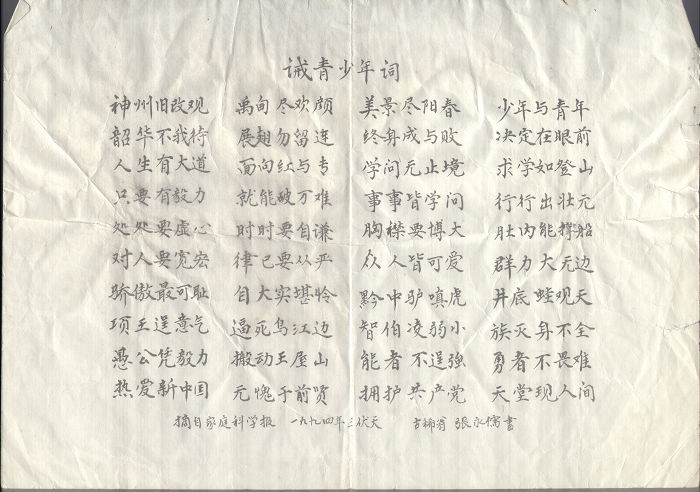 诫青少年词
神州旧改观 禹甸尽欢颜 美景尽阳春 少年与青年
韶华不我待 展翅勿留连 终身成与败 决定在眼前
人生有大道 面向红与专 学问无止境 求学如登山
只要有毅力 就能破万难 事事皆学问 行行出壮元
处处要虚心 时时要自谦 胸襟要博大 肚内能撑船
对人要宽宏 律己要从严 众人皆可爱 群力大无边
骄傲最可耻 自大实堪怜 黔中驴嗔虎 井底蛙观天
项王逞意气 逼死乌江边 智伯凌弱小 族灭身不全
愚公凭毅力 搬动王屋山 能者不逞强 勇者不畏难
热爱新中国 无愧于前贤 拥护共产党 天堂现人间
摘自家庭科学报 一九九四年三伏天 古稀翁 張永儒書